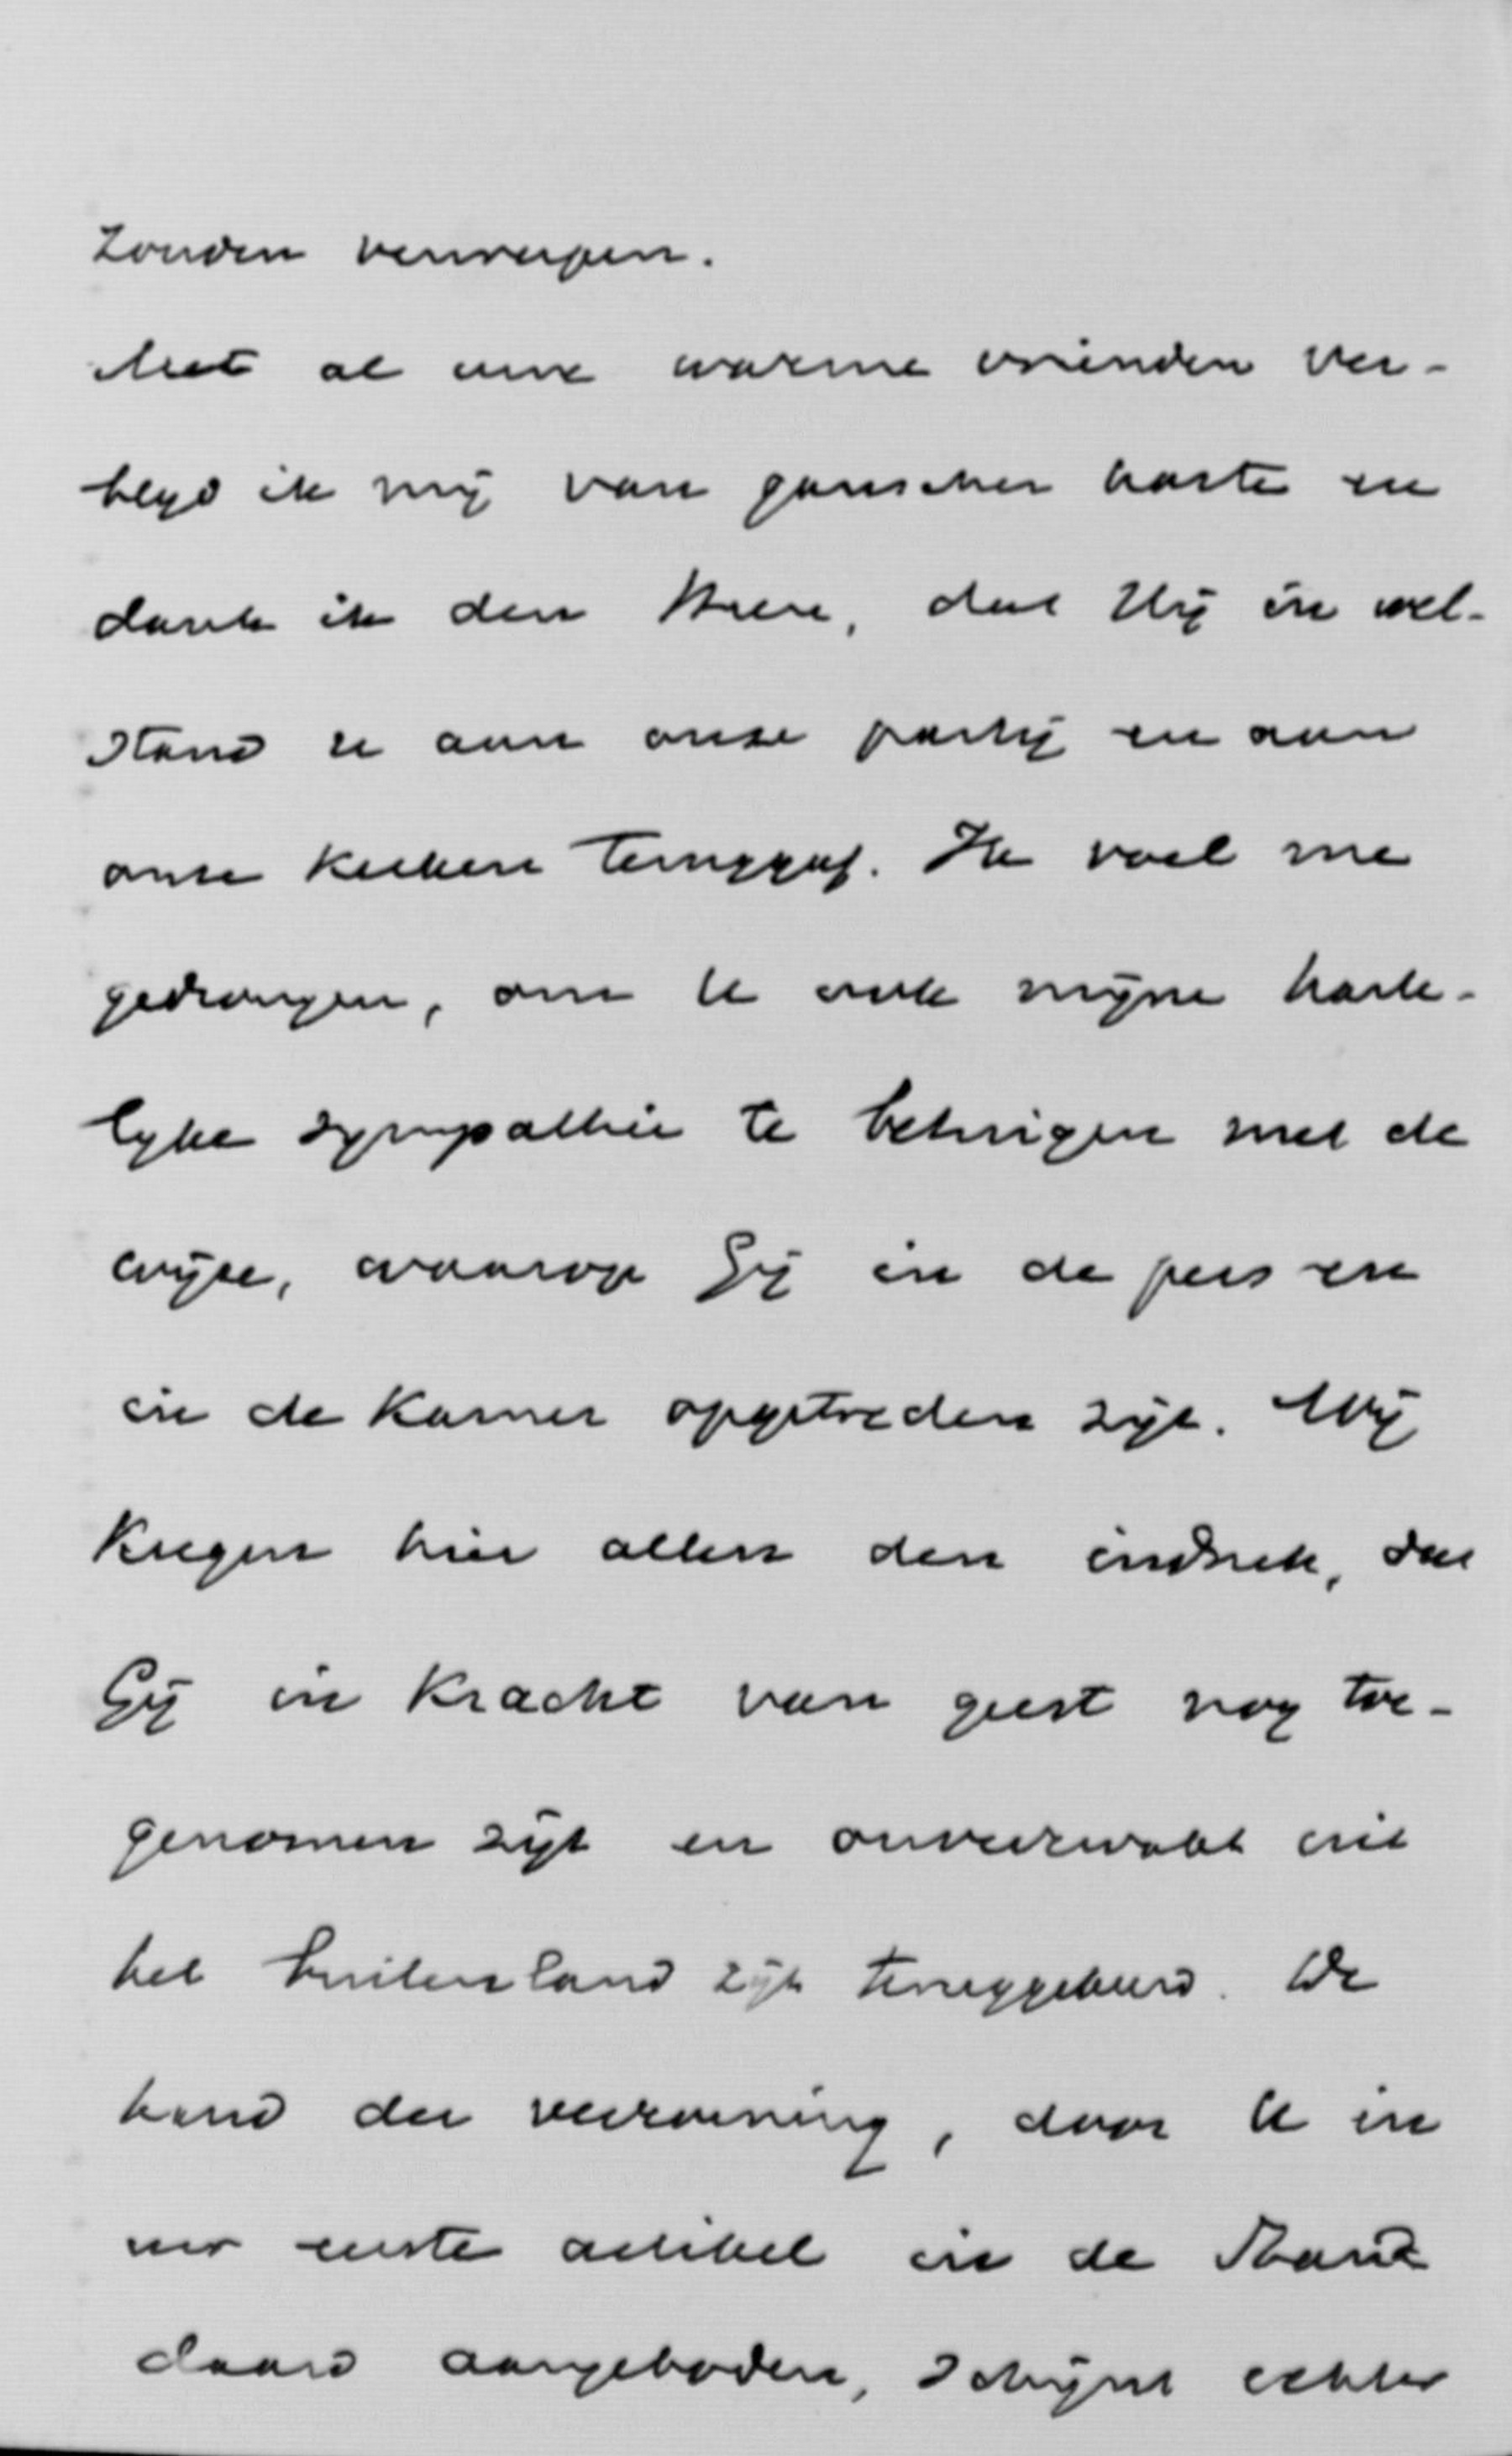 zouden verwerpen.
Met al uwe warme vrienden ver-
blyd ik mij van ganscher harte en
dank ik den Heere, dat Hij in wel-
stand U aan onze partij en aan
onze kerken teruggaf. Ik voel me
gedrongen, om U ook mijne harte-
lyke sympathie te betuigen met de
wijze, waarop Gij in de pers en
in de Kamer opgetreden zijt. Wij
kregen hier allen den indruk, dat
Gij in kracht van geest nog toe-
genomen zijt en onverzwakt uit
het buitenland zijt teruggekeerd. De
hand der verzoening, door U in
uw eerste artikel in de Stand
daard aangeboden, schijnt echter